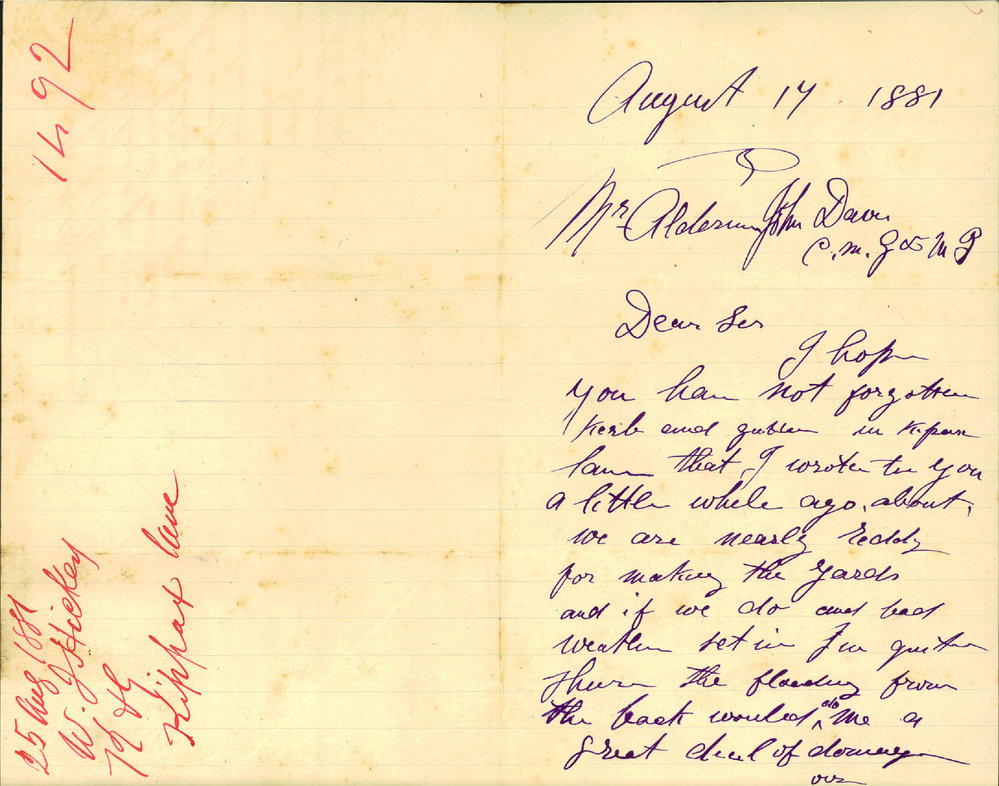 1492
25 Aug 1881
W. J Hickey
K & G
Kippax lane
August 17 1881
Mr Alderman John Davis
C. M. G & M P
Dear Ser
I hope
you have not forgotten
Kerb and gutter in Kipax
lane that I wrote to you
a little while ago. about.
we are nearly reddy
for making the yards
and if we do and bad
weather set in I'm quite
shure the flooding from
the back would do me a
great deal of domage
over